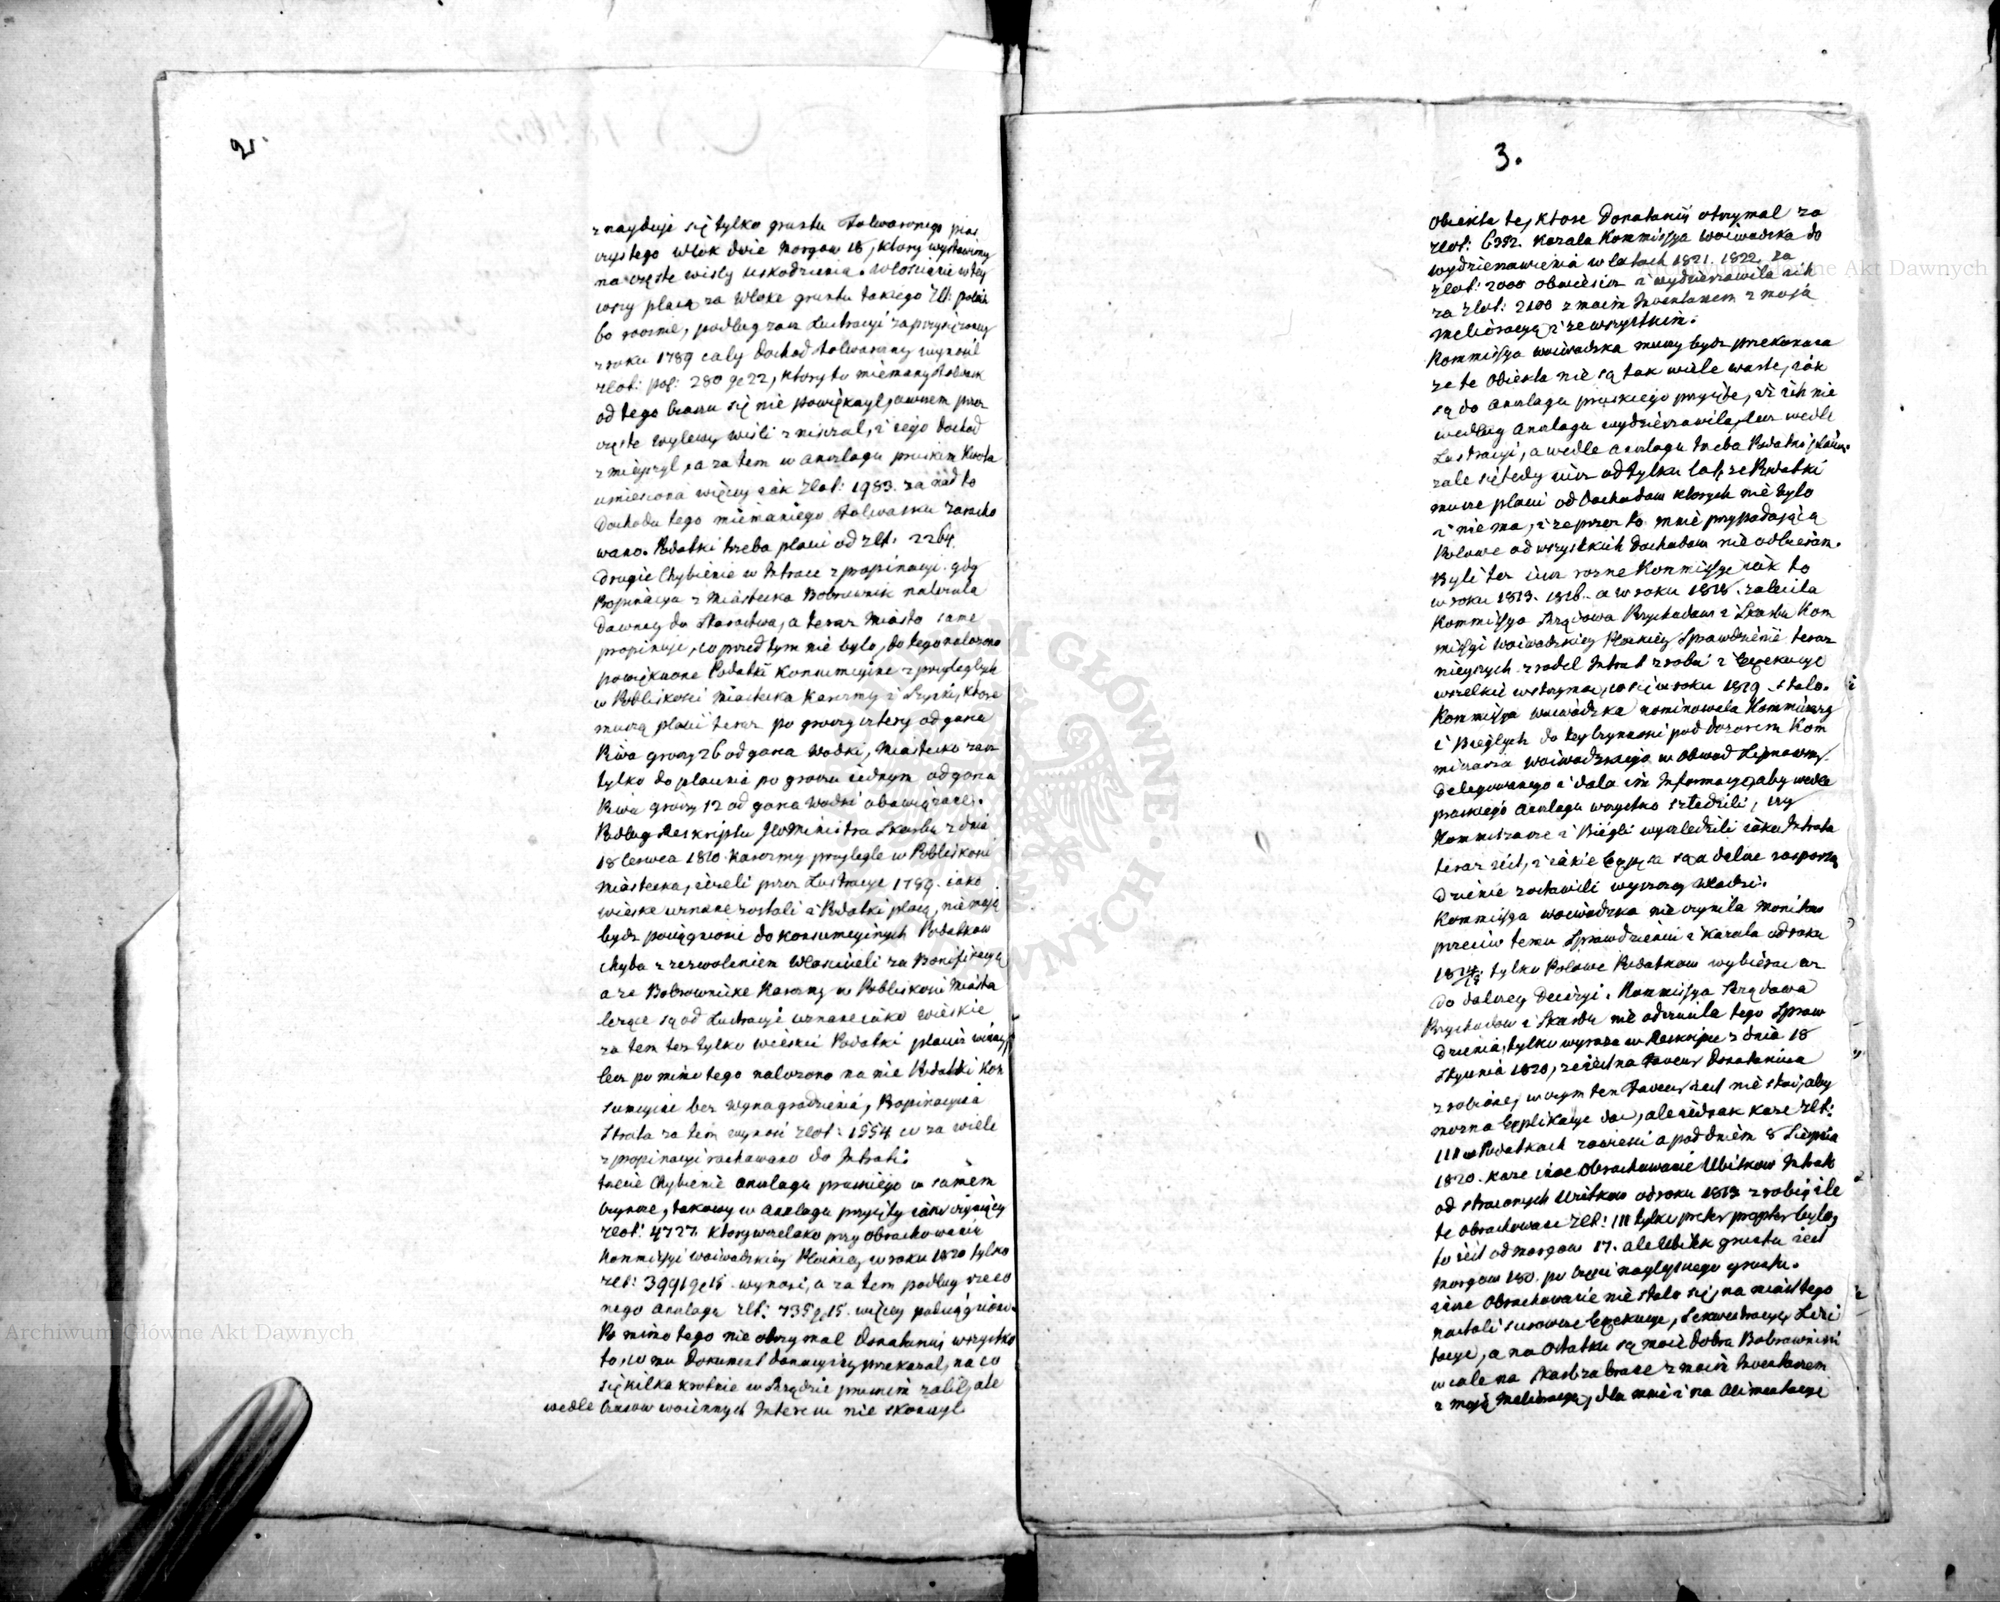 2.
znayduje się tylko gruntu folwarcznego pias
czystego włók dwie morgow 18, ktory wystawiony
na częste wisły uszkodzenia. Włościanie w tey
wsi płacą za włokę gruntu takiego Zlt: polsk
60 rocznie, podług zaś Lustracyi zaprzysiężoney
z roku 1789 cały dochod folwarczny wynosił
zlot: pol: 280 gr 22, ktory to miemany folwark
od tego czasu się nie powiększył, owszem przez
częste wylewy wisli zniszczał, i iego dochod
zmieyszył, a za tem w anszlagu pruskim kwota
umieszczona więcey iak Zlot: 1983. za nad to
dochodu tego miemaniego folwarku zaracho
wano. Podatki trzeba płacić od zlt: 2264.
Drugie Chybienie w Intracie z propinacyi. gdy
Propinacya z Miasteczka Bobrownik należała
dawniey do Starostwa, a teraz Miasto same
propinuje, co przed tym nie było, do tego nałożono
powiększone Podatki konsumcyine z przyległych
w Pobliskości Miasteczka karczmy i Szynki, ktore
muszą płacić teraz po groszy cztery od garca
Piwa groszy 26 od garca wodki, Miasteczko zaś
tylko do płacenia po groszu iednym od garca
Piwa groszy 12 od garca Wodki obowiązane.
Podług Reskryptu JW Ministra Skarbu z dnia
18 Czerwca 1810. karczmy przyległe w Pobliskości
Miasteczka, ieżeli przez Lustracye 1789. iako
wieyskie uznane zostali i Podatki płacą, nie mają
bydz pociągnione do konsumcyinych Podatkow
chyba z zezwoleniem Właścicieli za Bonifikacyą
a że Bobrownickie karczmy w Pobliskości Miasta
leżące są od Lustracyi uznane iako wieyskie
za tem tez tylko wieyskie Podatki płacić winny
lecz po mimo tego nalozono na nie Podatki kon
sumcyine bez wynagrodzenia, Propinacyina
Strata za tem wynosi zlot: 1554 co za wiele
z propinacyi rachowano do Intraty.
trzecie Chybienie anszlagu pruskiego w samem
Czynszu, takowy w anszlagu przyięty iako czyniący
zlot: 4727. ktory wszelako przy obrachowaniu
Kommissyi Woiewodzkiey Płockiey w roku 1820 tylko
zlt: 3991 gr 15. wynosi, a za tem podług rzeczo
nego anszlagu zlt: 735 gr 15. więcey pociągniono.
Po mimo tego nie otrzymał Donataryusz wszystko
to, co mu dokument donacyiny przekazał, na co
się kilkakrotnie w Rządzie pruskim żalił, ale
wedle Czasow woiennych Interesu nie skonczył.
3.
Obiekta te, ktore Donataryusz otrzymał za
zlot: 6392. kazała Kommissya Woiewodzka do
wydzierzawienia w latach 1821. 1822. za
zlot: 2000 obwiescic i wydzierzawiła ich
za zlot: 2100 z moim Inwentarzem z moją
melioracyą i ze wszystkim.
Kommissya woiewodzka musy bydz przekonana
ze te Obiekta nie są tak wiele warte, iak
są do anszlagu pruskiego przyięte, iż ich nie
według anszlagu wydzierzawiła, lecz wedle
Lustracyi, a wedle anszlagu trzeba Podatki płacic.
żale się tedy iuż od tylku lat, że Podatki
muszę płacić od Dochodow ktorych nie było
i nie ma, i że przez to mnie przypadającą
Połowe od wszystkich dochodow nie odbieram.
Byli tez iuż rozne Kommissye iak to
w roku 1813. 1816. a w roku 1818. zaleciła
Kommissya Rządowa Przychodow i Skarbu Kom
missyi Woiewodzkiey Płockiey Sprawdzenie teraz
nieyszych zrodeł Intrat zrobić i Exekucye
wszelkie wstrzymać, co się w roku 1819. stało.
Kommissya woiewodzka nominowała Kommissarzy
i Biegłych do tey Czynności pod dozorem Kom
missarza Woiewodzkiego w Obwod Lipnowski
delegowanego i dała im Informacye, aby wedle
pruskiego anszlagu wszystko sledzili, czy
Kommissarze i Biegli wysledzili iaka Intrata
teraz iest, i iakie Czynsze są a dalne rozporzą
dzenie zostawili wyzszey Władzi.
Kommissya woiewodzka nie czyniła Monitow
przeciw temu Sprawdzeniu i kazała od roku
18 14/15. tylko Połowe Podatkow wybierac az
do dalszey Decyzyi. Kommissya Rządowa
Przychodow i Skarbu nie odrzuciła tego Spraw
dzenia, tylko wyraza w Reskrypcie z dnia 18
Stycznia 1820, że iest na faveur Donataryusza
zrobione, w czym ten faveur iest nie stoi, aby
mozna Explikacye dac, ale iednak każe zlt:
111 w Podatkach zawiesić a pod dniem 8 Sierpnia
1820. każe inne Obrachowanie Ubitkow Intrat
od straconych Uzitkow od roku 1813 zrobić, ile
te obrachowane zlt: 111 tylko preter propter byłoż
to iest od morgow 17. ale Ubitk gruntu iest
morgow 180. po Części naylepszego gruntu.
inne Obrachowanie nie stało się, na mieistego
nastali surowsze Exekucye, Sekwestracye, Lici
tacye, a na Ostatku są moie dobra Bobrownicki
wcale na Skarb zabrane z moim Inwentarzem
z moją Melioracyą, dla mnie i na Alimentacye